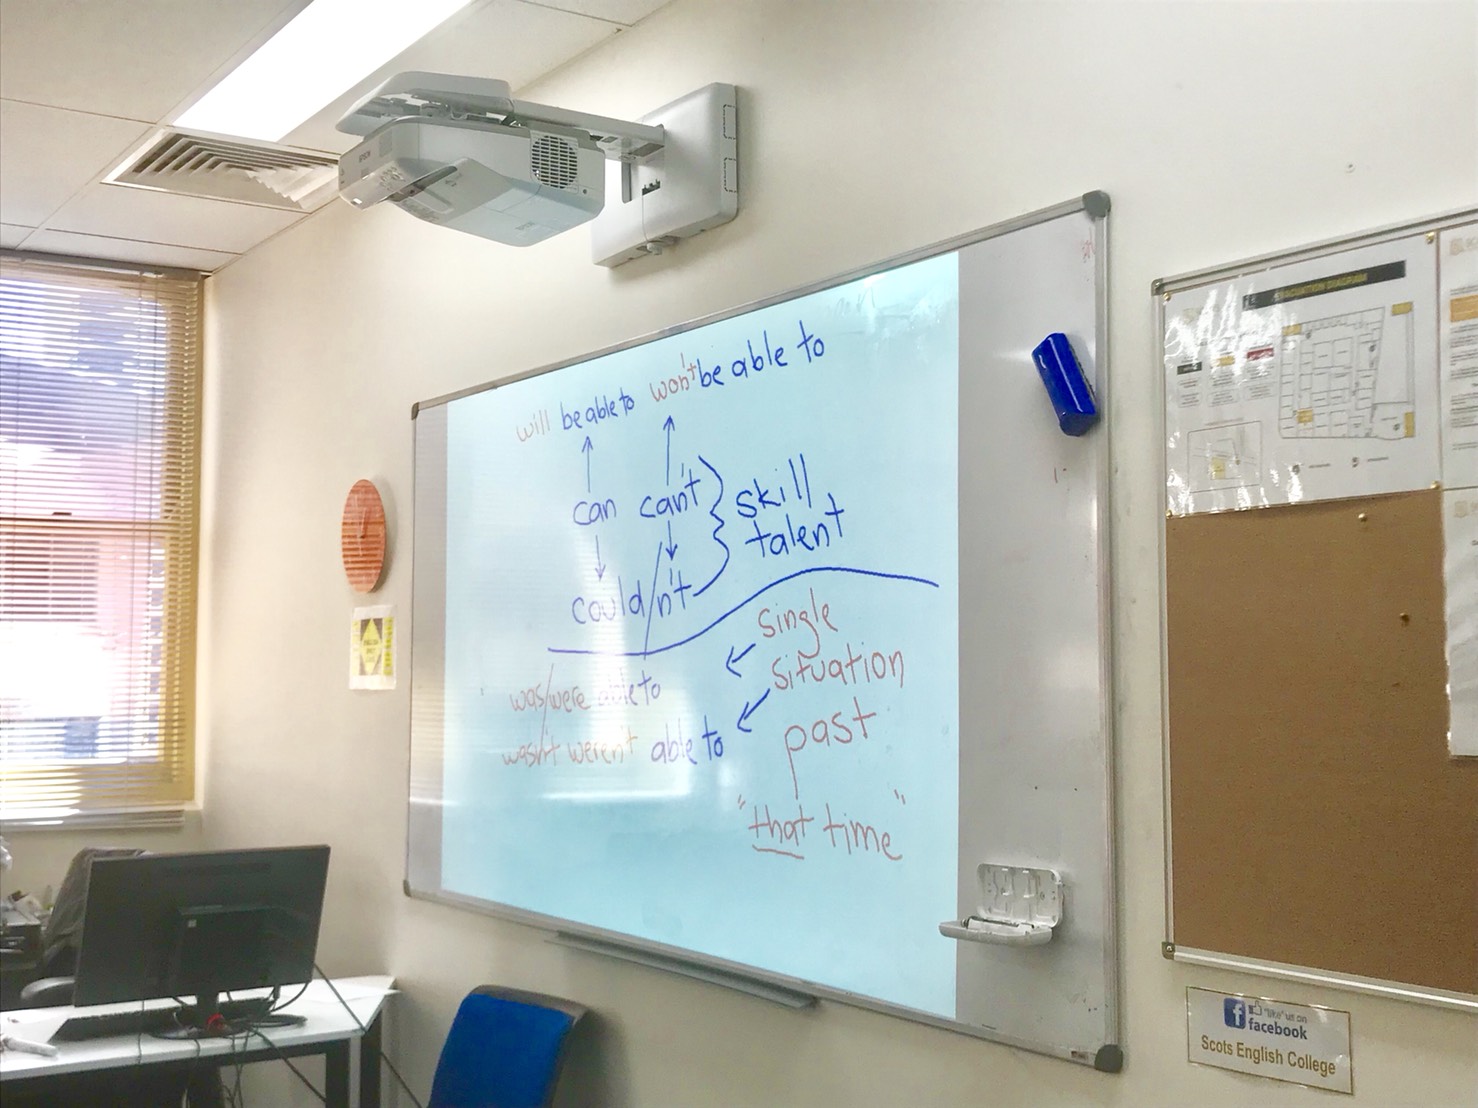 will be able to won't be able to
can can't
skill
talent
could/n't
single
situation
was/were able to
past
wasn't weren't able to
"that time"
EPSON
EVACUATION DIAGRAM
"like" us on
facebook
Scots English College